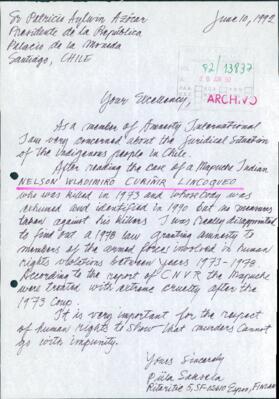 Sr Patricio Aylwin Azócar
June 10, 1992
Presidente de la República
Palacio de la Moneda
Santiago, CHILE
92/13837
ARCHIVO
Your Excellency,
As a member of Amnesty International
I am very concerned about the juridical situation
of the indigenous people in Chile.
After reading the case of a Mapuche Indian
NELSON WLADIMIRO CURIÑIR LINCOQUEO
who was killed in 1973 and whose body was
exhumed and identified in 1990 but no measures
taken against his killers I was really disappointed
to find out a 1978 law granting amnesty to
members of the armed forces involved in human
rights violations between years 1973-1978.
According to the report of CNVR the Mapuche
were treated with extreme cruelty after the
1973 coup.
It is very important for the respect
of human rights to show that murders cannot
go with impunity.
Yours Sincerely
Ritaritie 5, SF-02610 Espoo, FINLAND